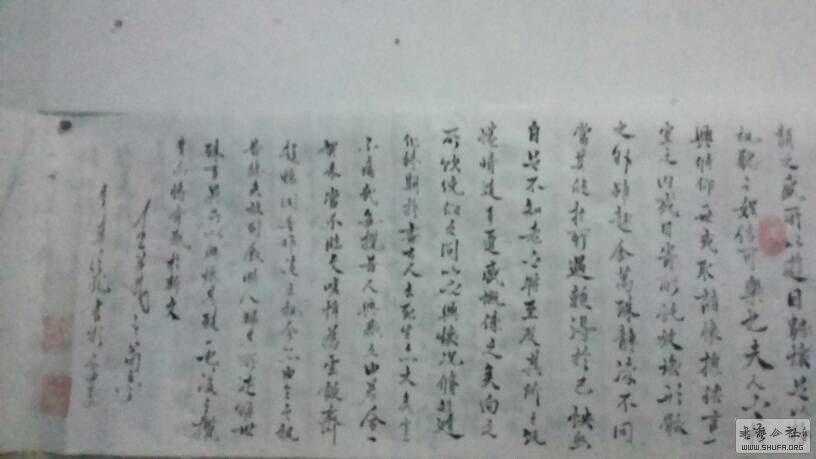 類之盛所以遊目騁懷足以
視聽之娛信可樂也夫人之
與俯仰一世或取諸懷抱悟言一
室之內或因寄所託放浪形骸
之外雖趣舍萬殊靜躁不同
當其欣於所遇暫得於己快然
自足不知老之將至及其所之既
惓情隨事遷感慨係之矣向之
所欣俛仰之間以之興懷況脩短隨
化終期於盡古人云死生亦大矣豈
不痛哉每攬昔人興感之由若合一
契未嘗不臨文嗟悼為虛誕齊
彭殤為妄作後之視今亦由今之視
昔悲夫故列敘時人錄其所述雖世
殊事異所以興懷其致一也後之攬
者亦將有感於斯文
书法公社
WWW.SHUFA.ORG